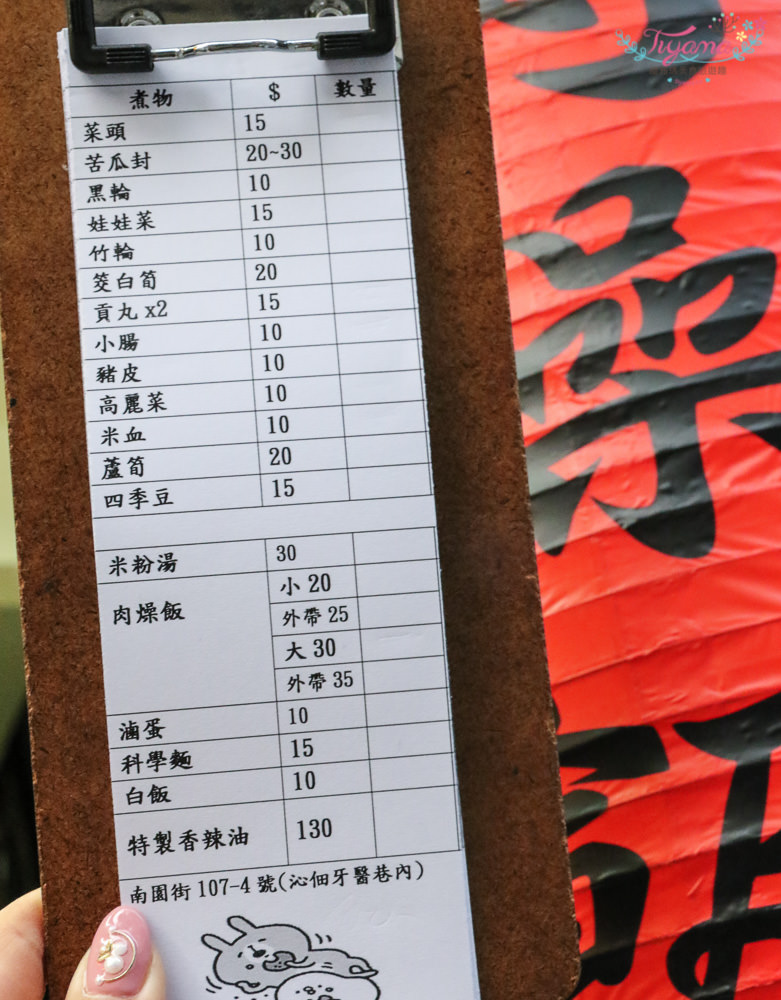 Tiyana
煮物 $ 數量
菜頭 15
苦瓜封 20~30
黑輪 10
娃娃菜 15
竹輪 10
筊白筍 20
貢丸 x2 15
小腸 10
豬皮 10
高麗菜 10
米血 10
蘆筍 20
四季豆 15
米粉湯 30
肉燥飯 小 20
外帶 25
大 30
外帶 35
滷蛋 10
科學麵 15
白飯 10
特製香辣油 130
南園街 107-4 號(沁佃牙醫巷內)